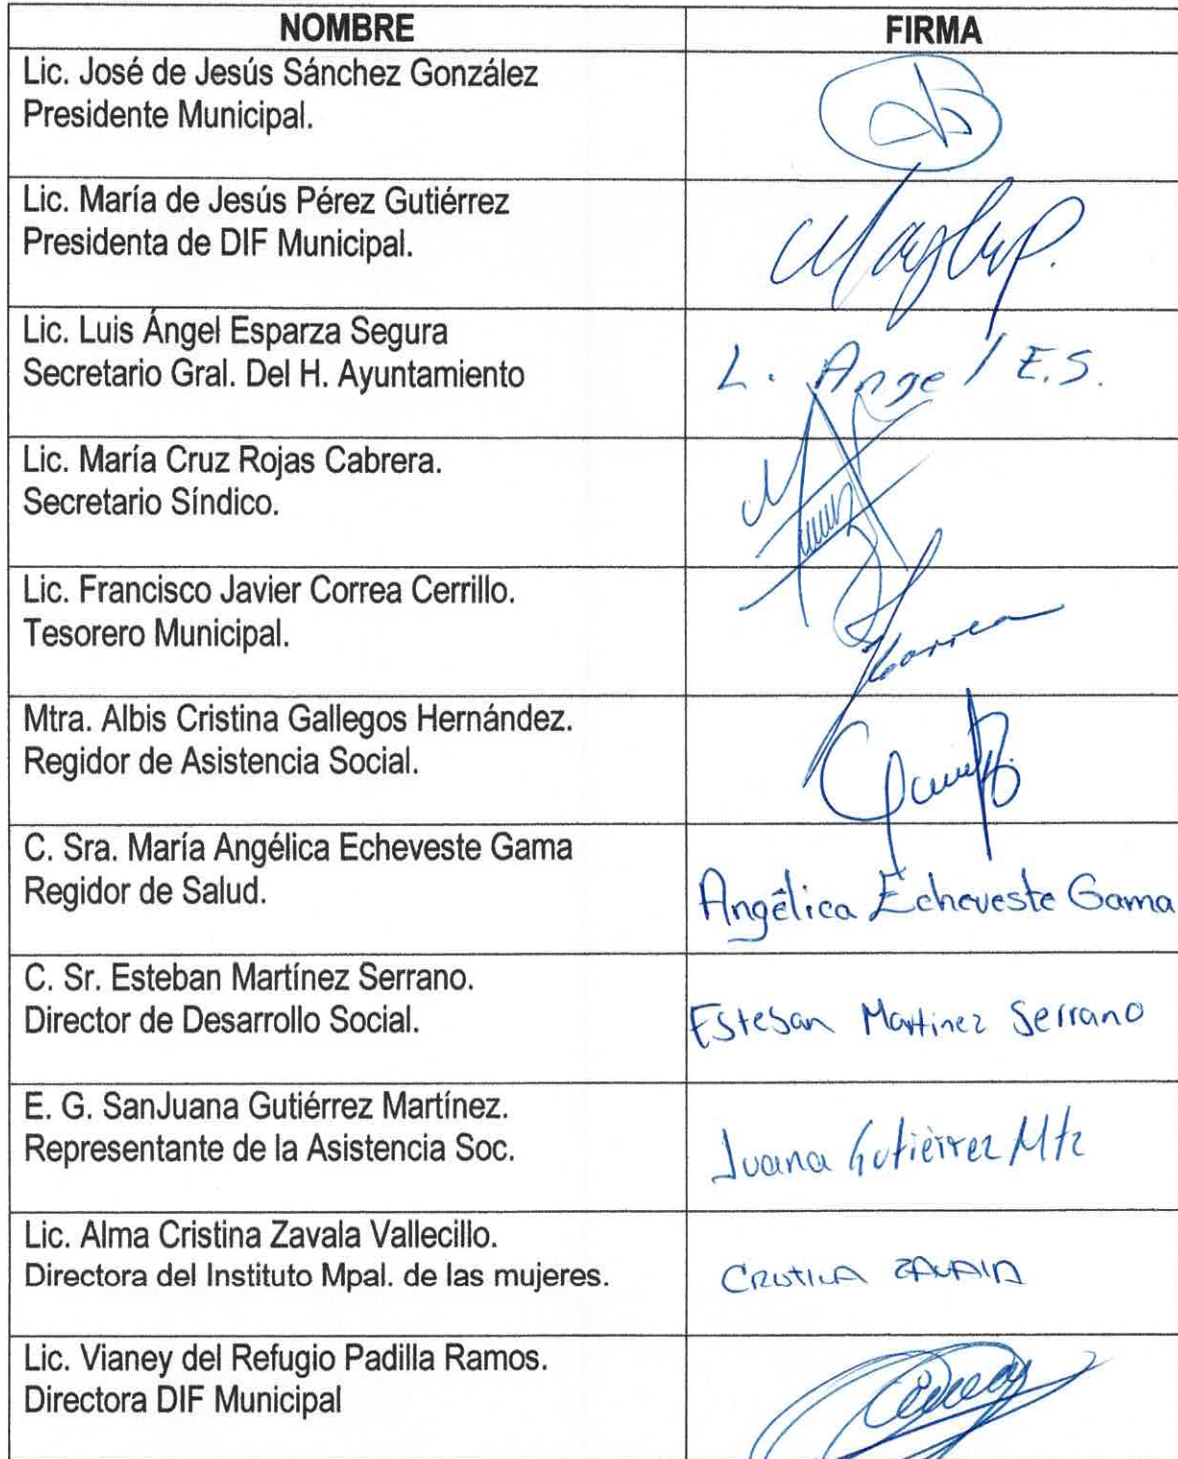 NOMBRE FIRMA
Lic. José de Jesús Sánchez González
Presidente Municipal.
Lic. María de Jesús Pérez Gutiérrez
Presidenta de DIF Municipal.
Lic. Luis Ángel Esparza Segura
Secretario Gral. Del H. Ayuntamiento
L. Angel E.S.
Lic. María Cruz Rojas Cabrera.
Secretario Síndico.
Lic. Francisco Javier Correa Cerrillo.
Tesorero Municipal.
Mtra. Albis Cristina Gallegos Hernández.
Regidor de Asistencia Social.
C. Sra. María Angélica Echeveste Gama
Regidor de Salud.
Angélica Echeveste Gama
C. Sr. Esteban Martínez Serrano.
Director de Desarrollo Social.
Esteban Martinez Serrano
E. G. SanJuana Gutiérrez Martínez.
Representante de la Asistencia Soc.
Juana Gutiérrez Mtz
Lic. Alma Cristina Zavala Vallecillo.
Directora del Instituto Mpal. de las mujeres.
ZAVALA
Lic. Vianey del Refugio Padilla Ramos.
Directora DIF Municipal